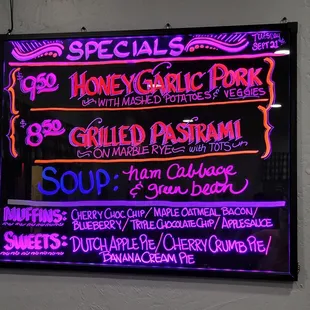 SPECIALS
TUESDAY
SEPT 21st
$9.50 HONEY GARLIC PORK
WITH MASHED POTATOES & VEGGIES
$8.50 GRILLED PASTRAMI
ON MARBLE RYE with TOTS
SOUP: ham Cabbage
& green bean
MUFFINS: CHERRY CHOC CHIP / MAPLE OATMEAL BACON /
BLUEBERRY / TRIPLE CHOCOLATE CHIP / APPLESAUCE
SWEETS: DUTCH APPLE PIE / CHERRY CRUMB PIE /
BANANA CREAM PIE